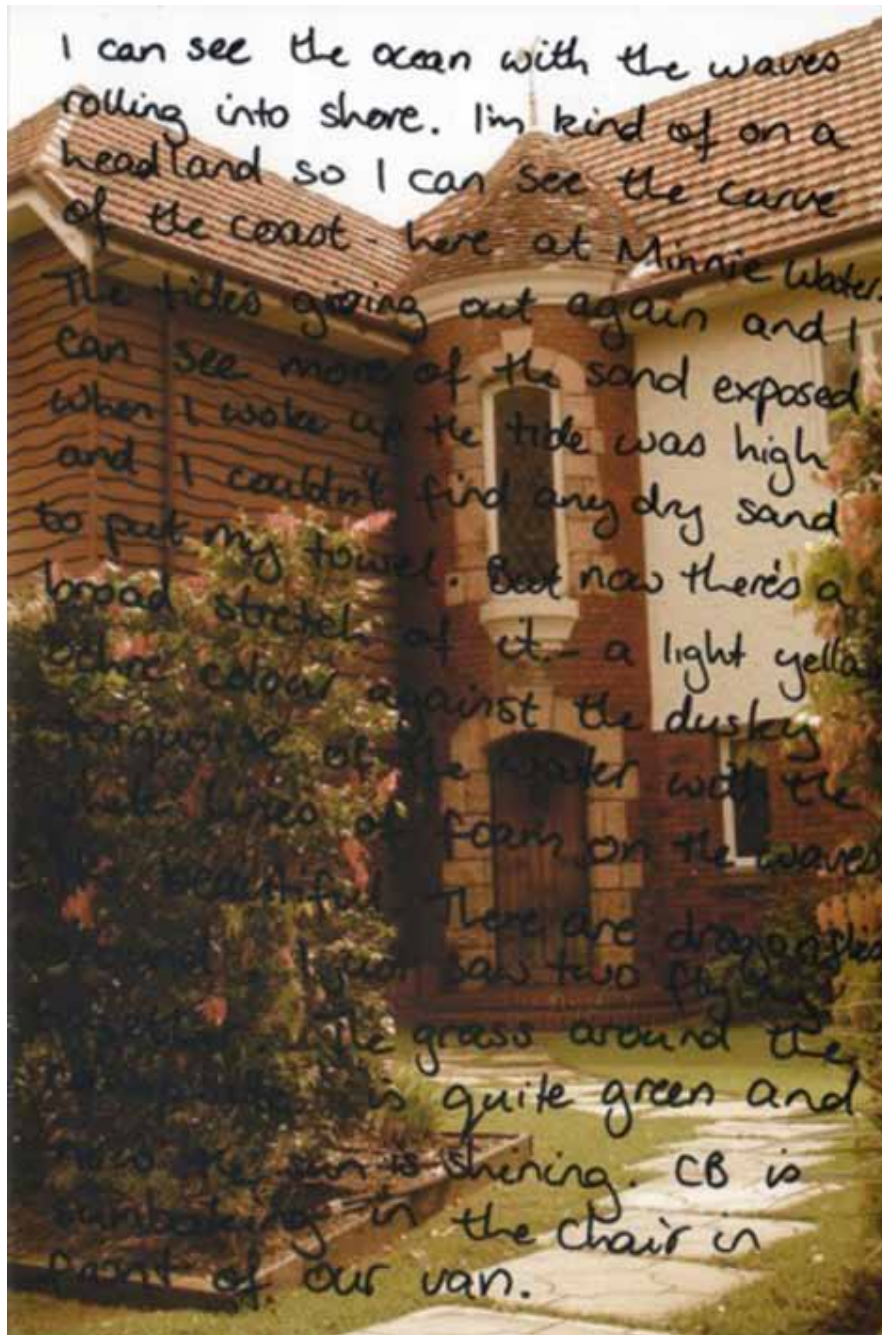 I can see the ocean with the waves
rolling into shore. I'm kind of on a
headland so I can see the curve
of the coast - here at Minnie Water.
The tide's going out again and I
can see more of the sand exposed
when I woke up the tide was high
and I couldn't find any dry sand
to put my towel. But now there's a
broad stretch of it - a light yellow
ochre colour against the dusky
torquoise of the water with the
white lines of foam on the waves
It's beautiful. There are dragonflies
around. I just saw two flying
the grass around the
is quite green and
now the sun is shining. CB is
sunbaking in the chair in
front of our van.